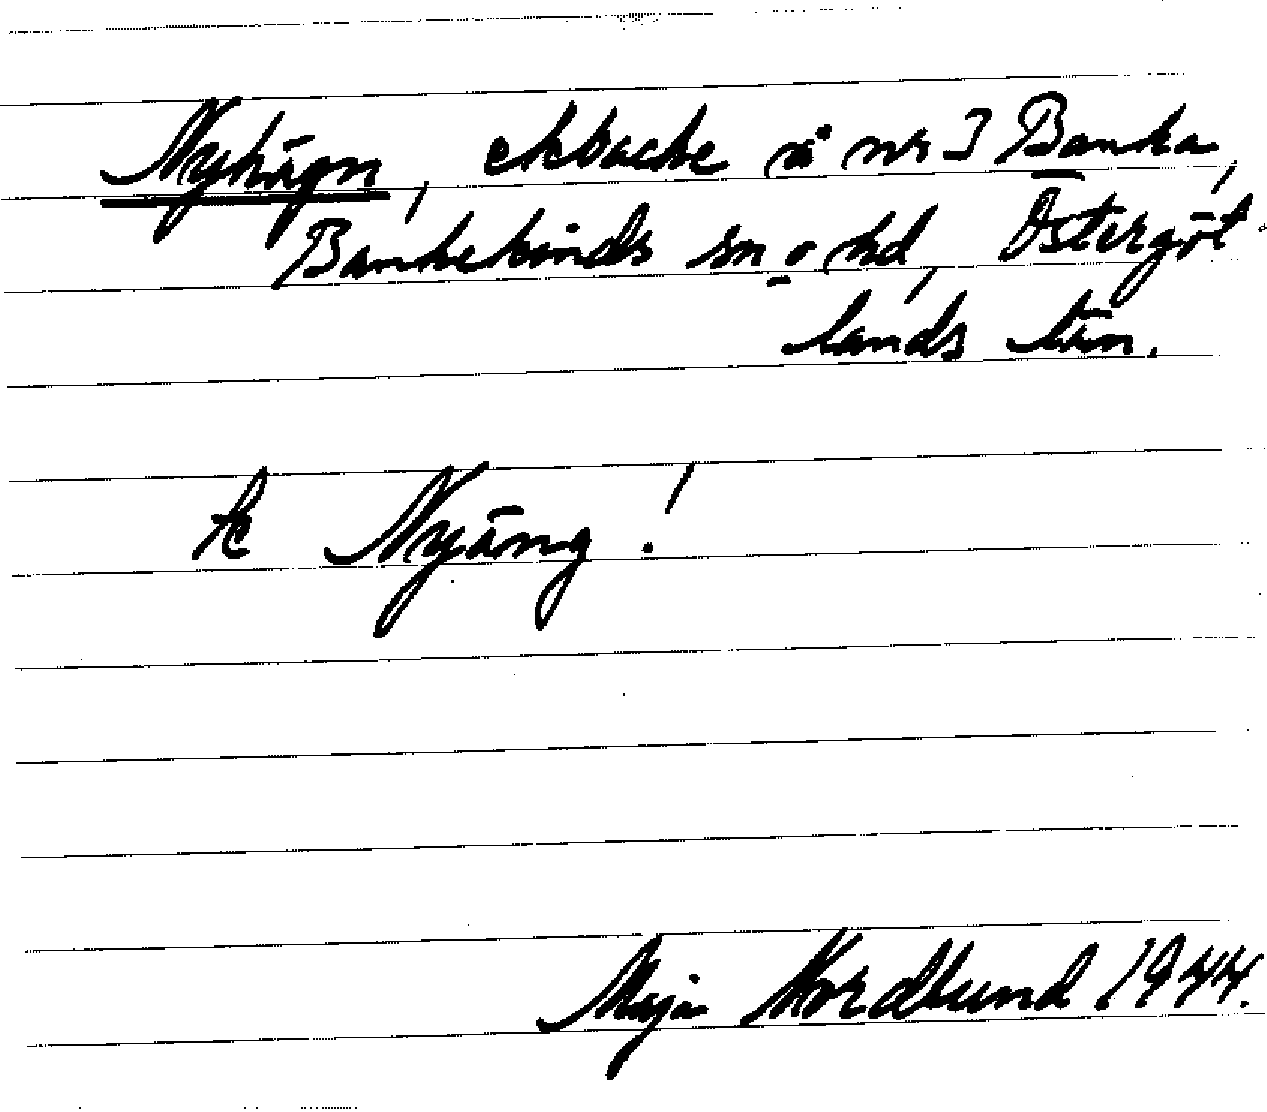 Nyhägn, ekbacke å nr 3 Banka,
Bankekinds sn o hd, Östergöt-
lands län.
Nyäng!
Maja Nordlund 1944.